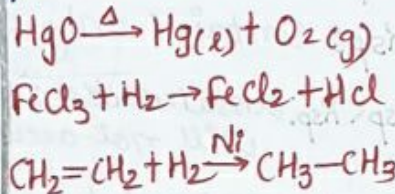 HgO \xrightarrow{Δ} Hg(l) + O₂(g)
FeCl₃ + H₂ → FeCl₂ + HCl
CH₂=CH₂ + H₂ \xrightarrow{Ni} CH₃—CH₃